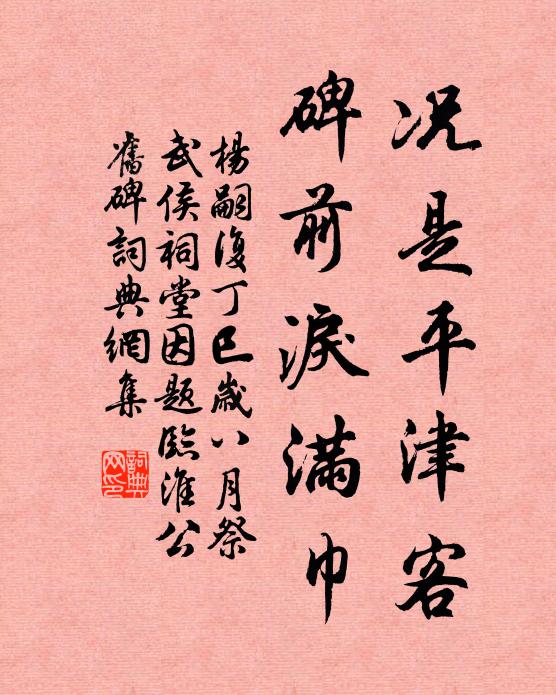 况是平津客
碑前淚滿巾
楊嗣復丁巳歲八月祭
武侯祠堂因题臨淮公
舊碑詞典網集
詞典
网印